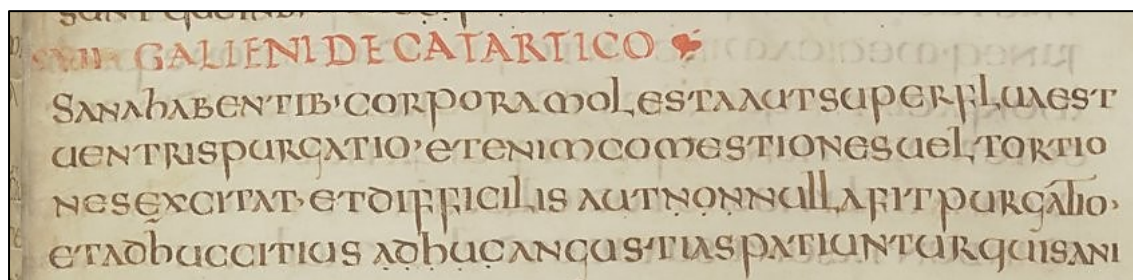 GALIENI DE CATARTICO
SANAhABENTIB' CORPORAMOLESTAAUTSUPERFLUAEST
UENTRISPURGATIO' ETENIMCOMESTIONESUELTORTIO
NESEXCITAT· ETDIFFICILIS AUTNONNULLAFITPURGATIO'
ETADhUCCITIUS ADhUCANGUSTIASPATIUNTURQUISANI